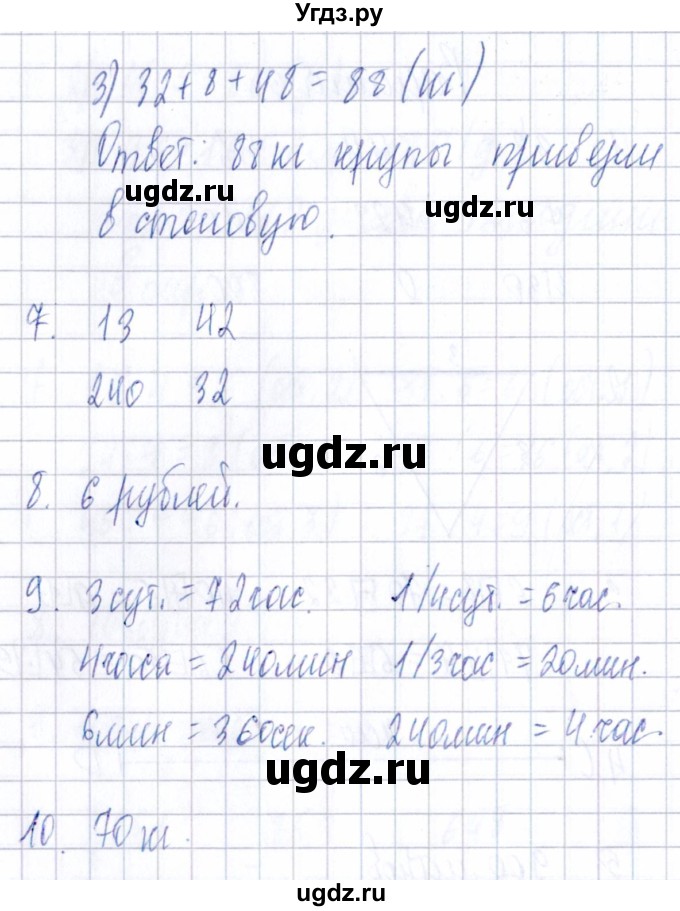 Угдз.ру
3) 32 + 8 + 48 = 88 (кг.)
Ответ: 88 кг крупы привезли
ugdz.ru ugdz.ru
в столовую.
7. 13 42
240 32
ugdz.ru
8. 6 рублей.
9. 3 сут. = 72 час. 1/4 сут. = 6 час.
4 часа = 240 мин 1/3 час = 20 мин.
6 мин = 360 сек. 240 мин = 4 час.
ugdz.ru
10. 70 кг.
ugdz.ru